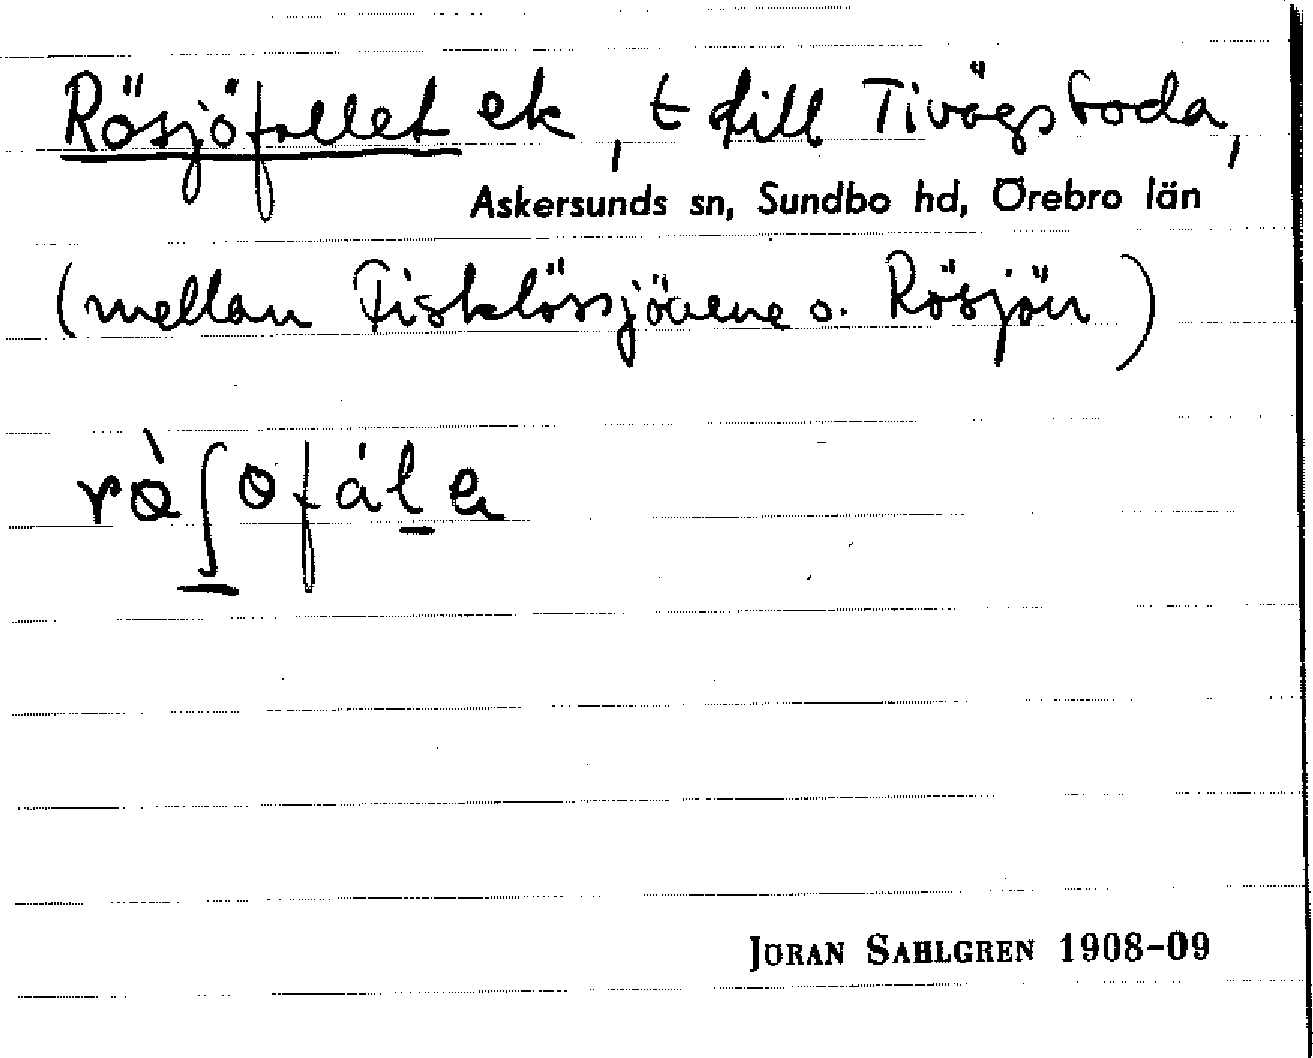 Rösjöfallet ek, t till Tivägsboda,
Askersunds sn, Sundbo hd, Örebro län
(mellan Fisklössjöarne o. Rösjön)
JÖRAN SAHLGREN 1908-09